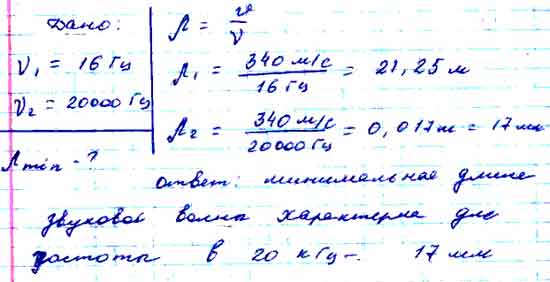 Дано:
ν₁ = 16 Гц
ν₂ = 20000 Гц
λmin - ?
λ = v/ν
λ₁ = 340 м/с / 16 Гц = 21,25 м
λ₂ = 340 м/с / 20000 Гц = 0,017 м = 17 мм
Ответ: минимальная длина
звуковой волны характерна для
частоты в 20 кГц - 17 мм